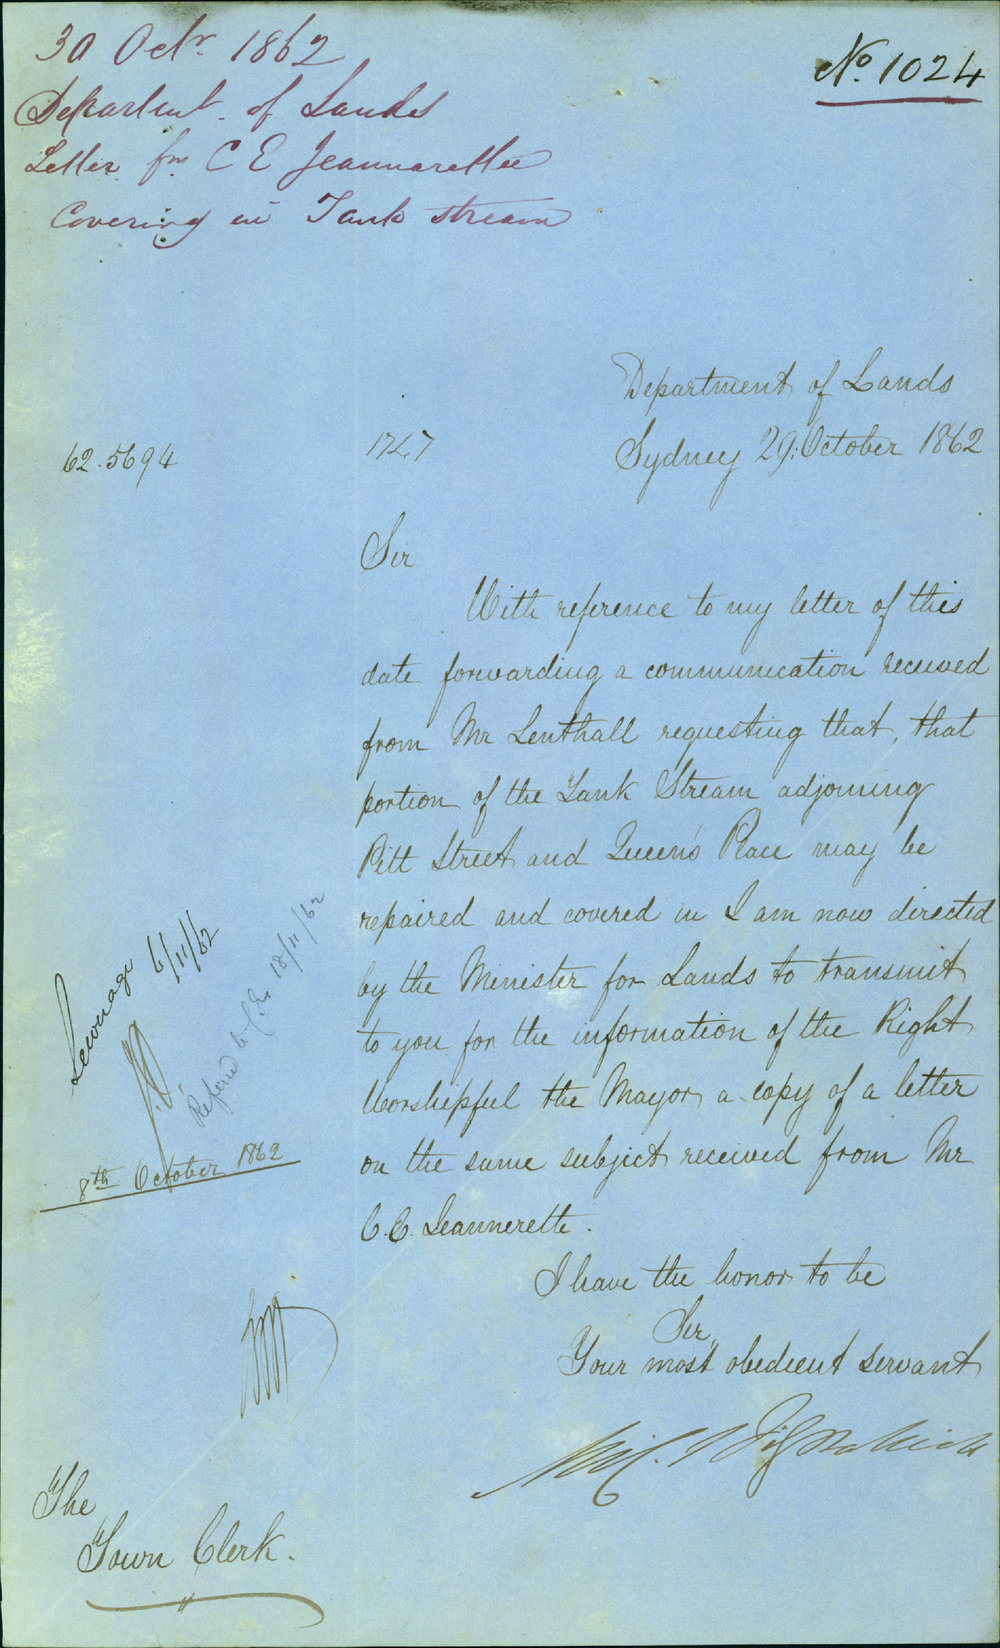 30 Octr 1862
No. 1024
Department of Lands
Letter fm C E Jeannarettee
Covering in Tank stream
Department of Lands
62.5694
1747
Sydney 29. October 1862
Sir
With reference to my letter of this
date forwarding a communication received
from Mr Lenthall requesting that, that
portion of the Tank Stream adjoining
Pitt Street and Queen's Place may be
repaired and covered in I am now directed
by the Minister for Lands to transmit
to you for the information of the Right
Worshipful the Mayor a copy of a letter
on the same subject received from Mr
C.E. Jeannerette.
Sewerage 6/11/62
Refered to C.E. 18/11/62
8th October 1862
I have the honor to be
Sir,
Your most obedient servant
Mic. Fitzpatrick
The
Town Clerk.